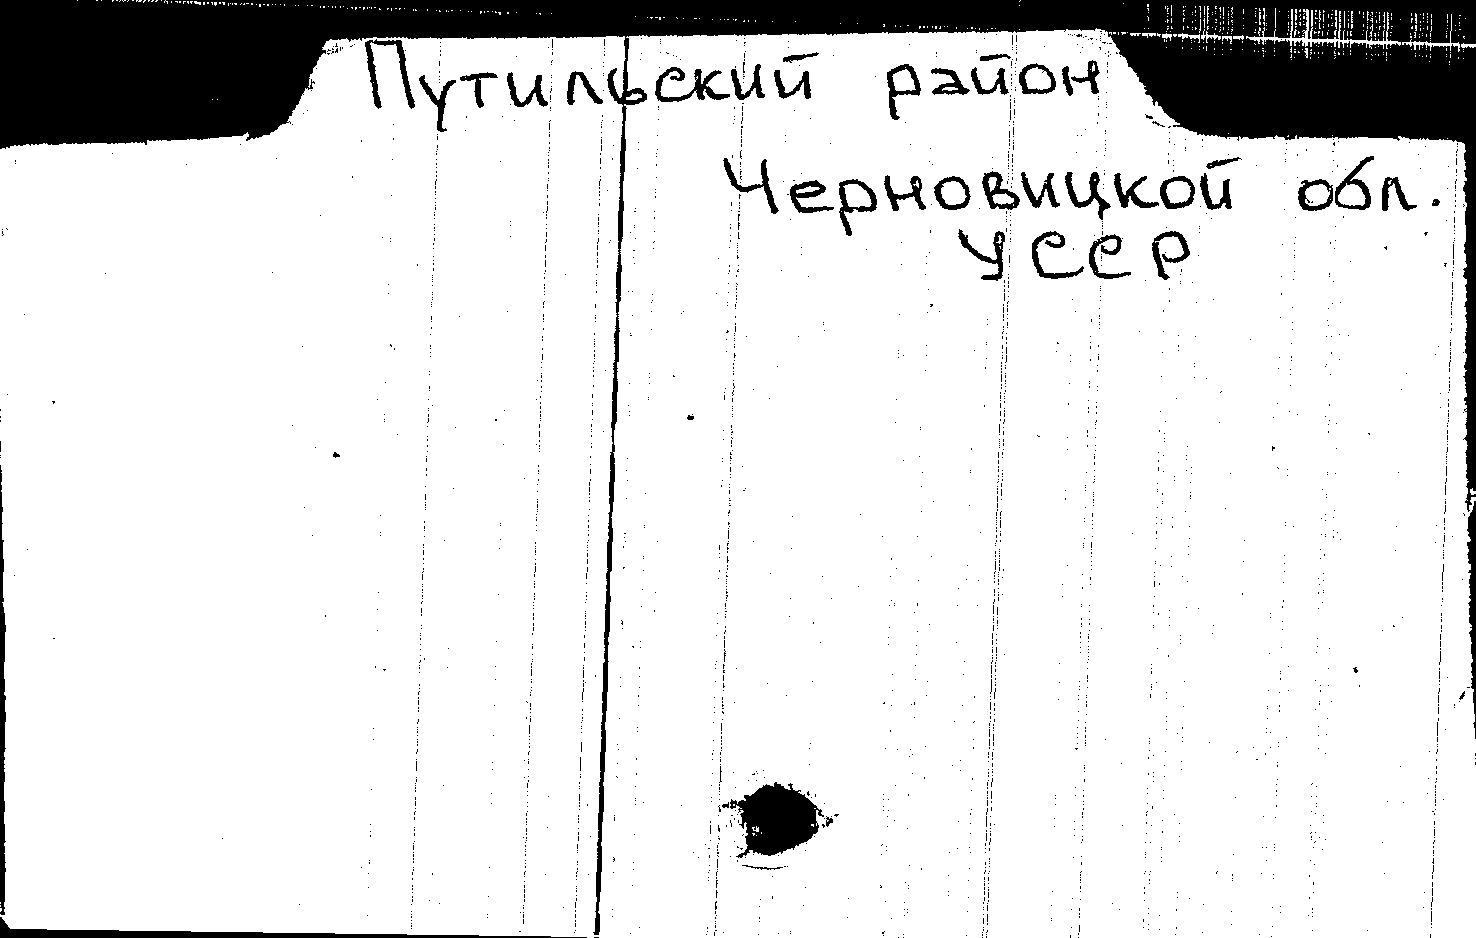 Путильский район
Черновицкой обл.
УССР